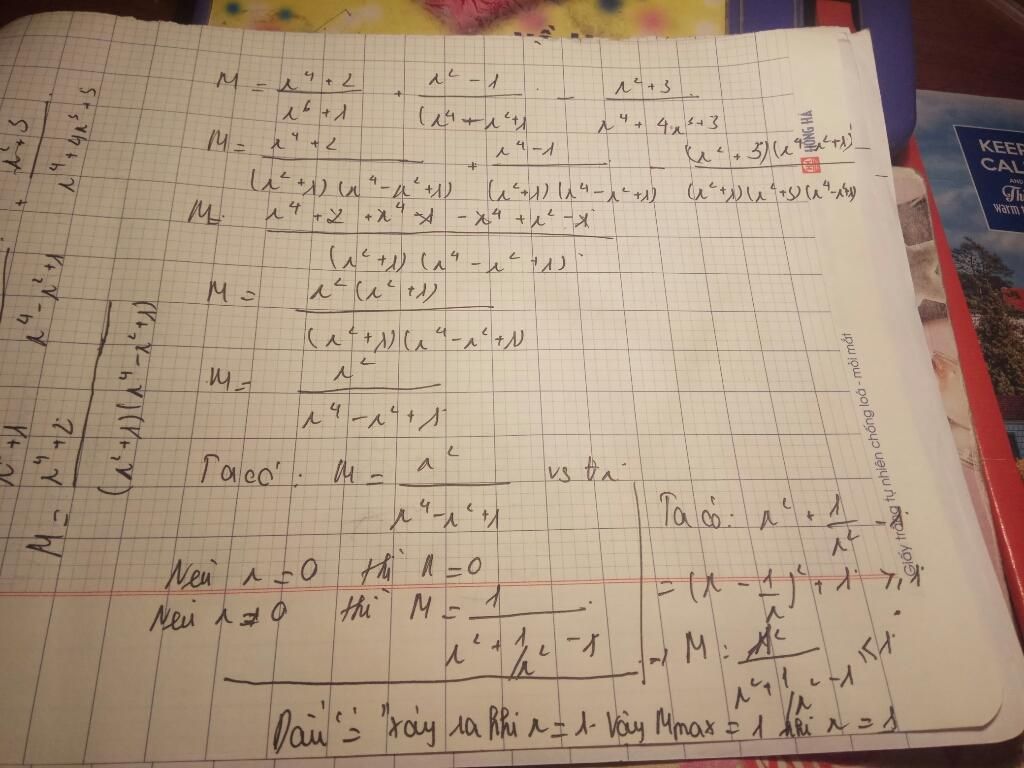 M = \frac{x^4 + 2}{x^6 + 1} + \frac{x^2 - 1}{(x^4 - x^2 + 1} - \frac{x^2 + 3}{x^4 + 4x^2 + 3}
M = \frac{x^4 + 2}{(x^2 + 1)(x^4 - x^2 + 1)} + \frac{x^4 - 1}{(x^2 + 1)(x^4 - x^2 + 1)} - \frac{(x^2 + 3)(x^4 - x^2 + 1)}{(x^2 + 1)(x^4 + 3)(x^4 - x^2 + 1)}
M = \frac{x^4 + 2 + x^4 - 1 - x^4 + x^2 - 1}{(x^2 + 1)(x^4 - x^2 + 1)}
M = \frac{x^2(x^2 + 1)}{(x^2 + 1)(x^4 - x^2 + 1)}
M = \frac{x^2}{x^4 - x^2 + 1}
Ta có: M = \frac{x^2}{x^4 - x^2 + 1}
Nếu x = 0 thì M = 0
Nếu x ≠ 0 thì M = \frac{1}{x^2 + 1/x^2 - 1}
Ta có: x^2 + \frac{1}{x^2} - 1
= (x - \frac{1}{x})^2 + 1 ≥ 1
→ M = \frac{x^2}{x^2 + 1/x^2 - 1} ≤ 1
Dấu "=" xảy ra khi x = 1. Vậy Mmax = 1 khi x = 1
x^2 + 3
x^4 + 4x^2 + 3
+
x^4 - x^2 + 1
M = \frac{x^4 + 2}{(x^2 + 1)(x^4 - x^2 + 1)}
HỒNG HÀ
Giấy trắng tự nhiên chống loá - mỏi mắt
KEEP
CAL
AND
Th
warm t